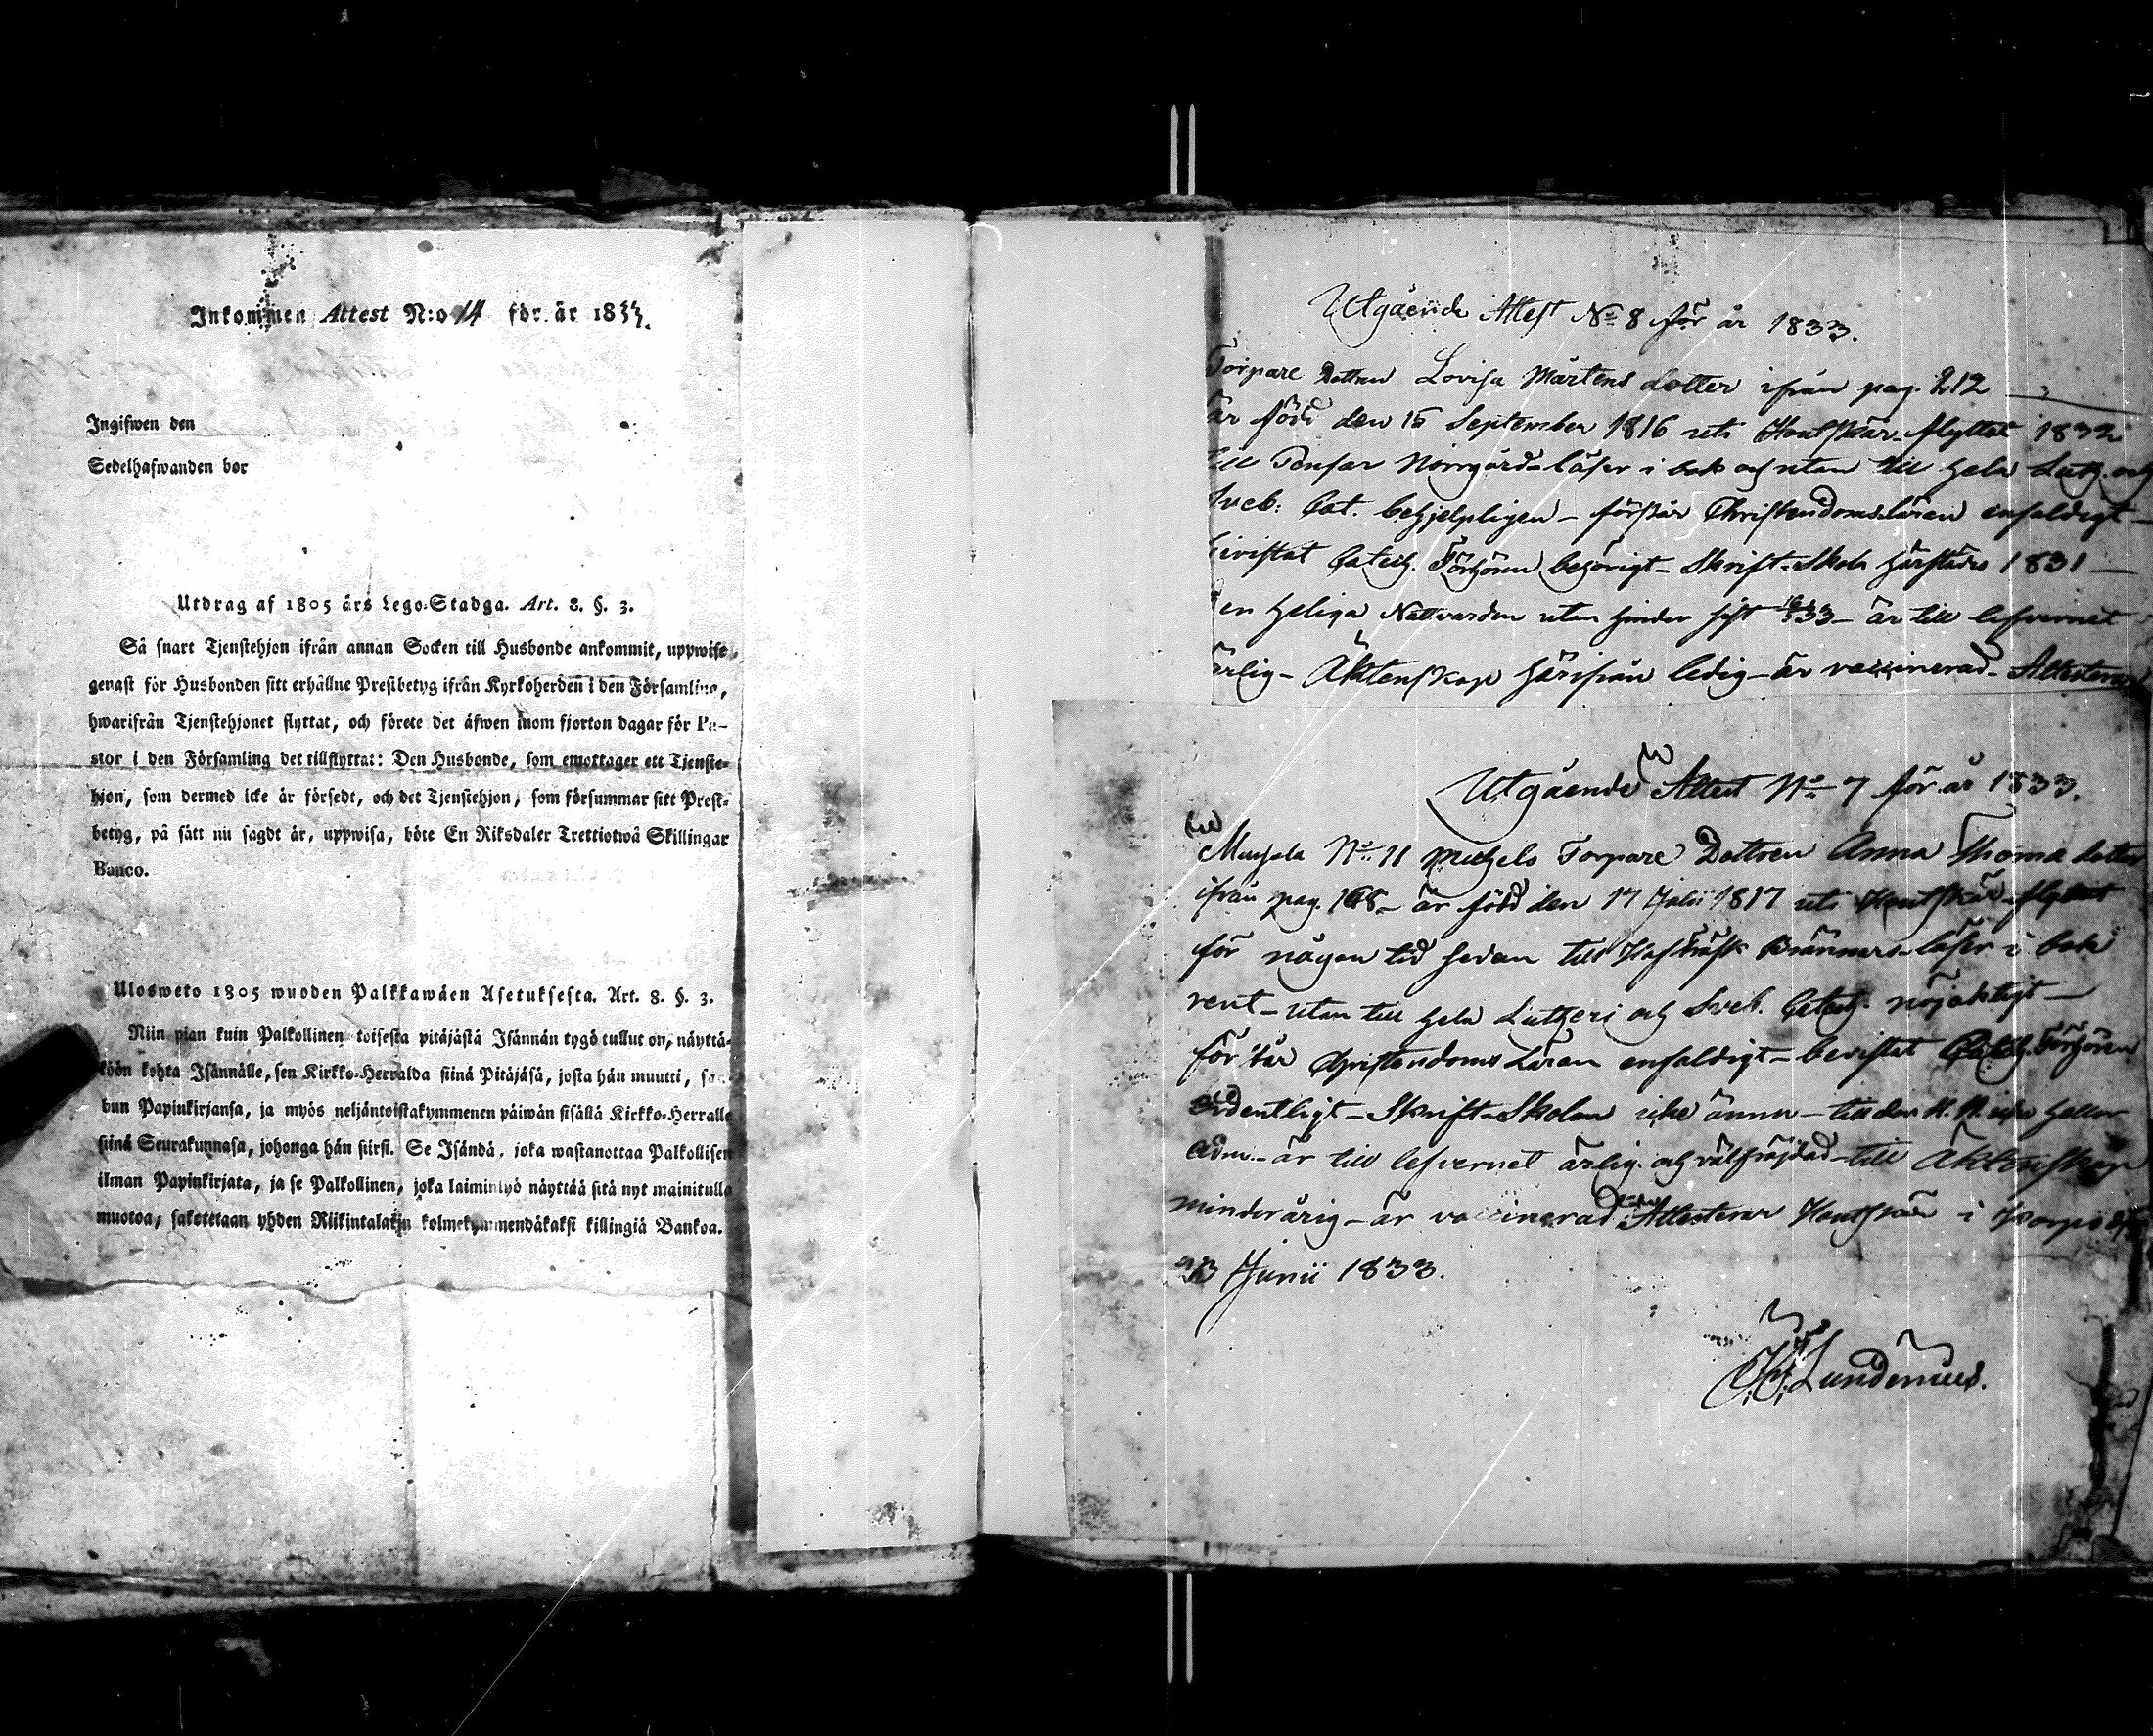 Inkommen Attest N:o 14 för år 1833.
Ingifwen den
Sedelhafwanden bor
Utdrag af 1805 års Lego-Stadga. Art. 8. §. 3.
Så snart Tjenstehjon ifrån annan Socken till Husbonde ankommit, uppwise
genast för Husbonden sitt erhållne Prestbetyg ifrån Kyrkoherden i den Församling,
hwarifrån Tjenstehjonet flyttat, och förete det äfwen inom fjorton dagar för Pa-
stor i den Församling det tillflyttat: Den Husbonde, som emottager ett Tjenste-
hjon, som dermed icke är försedt, och det Tjenstehjon, som försummar sitt Prest-
betyg, på sätt nu sagdt är, uppwisa, böte En Riksdaler Trettiotwå Skillingar
Banco.
Ulosweto 1805 wuoden Palkkawäen Asetuksesta. Art. 8. §. 3.
Niin pian kuin Palkollinen toisesta pitäjästä Isännän tygö tullut on, näyttä-
köön kohta Isännälle, sen Kirkko-Herralda siinä Pitäjäsä, josta hän muutti, saa-
dun Papinkirjansa, ja myös neljäntoistakymmenen päiwän sisällä Kirkko-Herralle
siinä Seurakunnasa, johonga hän siirsi. Se Isändä, joka wastanottaa Palkollisen
ilman Papinkirjata, ja se Palkollinen, joka laiminlyö näyttää sitä nyt mainitulla
muotoa, saketetaan yhden Riikintalarin kolmekymmendäkaksi killingiä Bankoa.
Utgående Attest No 8 för år 1833.
Torpare Dottren Lovisa Mårtens dotter ifrån pag. 212
är född den 15 September 1816 uti Houtskär flyttat 1832
till Norrgård läser i bok och utan till hela Luth. och
Sveb: Cat. behjelpligen - förstår Christendomsläran enfaldigt -
bivistat Catech. Förhören behörigt - Skrift-Skola härstädes 1831 -
den heliga Nattvarden utan hinder sist 1833 - är till lefvernet
ärlig - Äktenskap härifrån ledig - är vaccinerad - Attesterar
Utgående Attest No 7 för år 1833.
No 11 Torpare Dottren Anna Thomæ dotter
ifrån pag. 168 - är född den 17 Julii 1817 uti Houtskär - flyttat
för någon tid sedan till läser i bok
rent - utan till hela Lutheri och Sveb. Catech. nöjaktigt -
förstår Christendoms Läran enfaldigt - bevistat Catech. Förhören
ordentligt - Skrift-Skolan icke ännu - till den H. N. icke heller
adm. - är till lefvernet ärlig och välfräjdad - till Äktenskap
minderårig - är vaccinerad Attesterar Houtskär i Korpo
23 Junii 1833.
Lundenius.